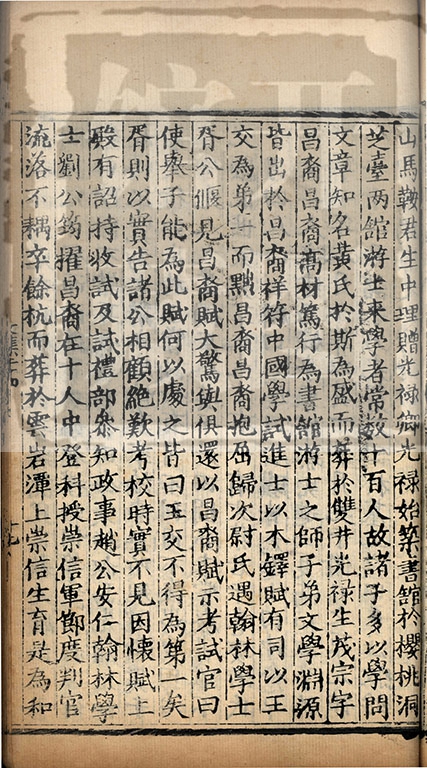 山馬鞍君生中理贈光禄卿光禄始築書舘於櫻桃洞
芝臺两舘游士来學者常數十百人故諸子多以學問
文章知名黄氏於斯為盛而葬於雙井光禄生茂宗字
昌裔昌裔髙材篤行為書舘游士之師子弟文學淵源
皆出於昌裔祥符中國學試進士以木鐸賦有司以王
交為弟一而黜昌裔昌裔抱屈歸次尉氏遇翰林學士
胥公偃見昌裔賦大驚與俱還以昌裔賦示考試官曰
使舉子能為此賦何以處之皆曰王交不得為第一矣
胥則以實告諸公相顧絶歎考校時實不見因懷賦上
殿有詔持收試及試禮部叅知政事趙公安仁翰林學
士劉公筠擢昌裔在十人中登科授崇信軍節度判官
流落不耦卒餘杭而葬於雲岩潭上崇信生育是為和